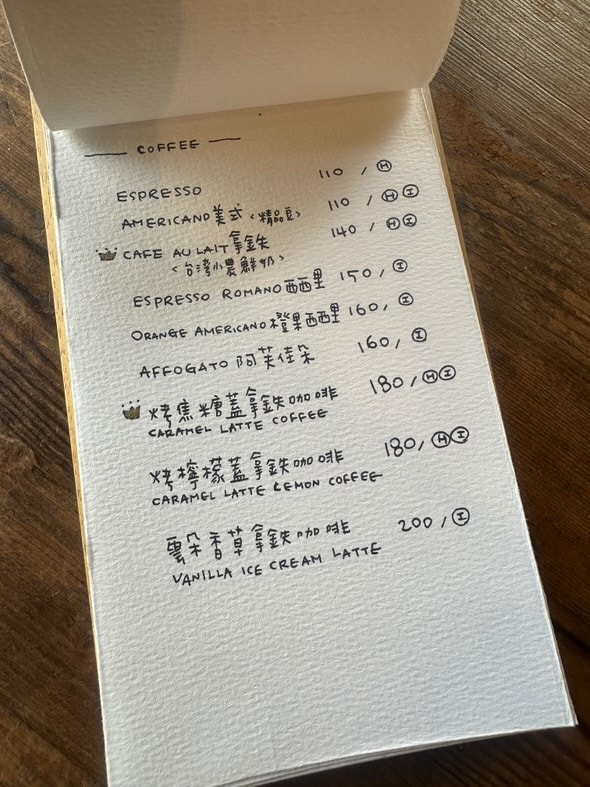 COFFEE
ESPRESSO 110 / Ⓗ
AMERICANO 美式 <精品豆> 110 / Ⓗ Ⓘ
CAFE AU LAIT 拿鉄 140 / Ⓗ Ⓘ
<台灣小農鮮奶>
ESPRESSO ROMANO 西西里 150 / Ⓘ
ORANGE AMERICANO 橙果西西里 160 / Ⓘ
AFFOGATO 阿芙佳朵 160 / Ⓘ
烤焦糖蓋拿鉄咖啡 180 / Ⓗ Ⓘ
CARAMEL LATTE COFFEE
烤檸檬蓋拿鉄咖啡 180 / Ⓗ Ⓘ
CARAMEL LATTE LEMON COFFEE
雲朵香草拿鉄咖啡 200 / Ⓘ
VANILLA ICE CREAM LATTE